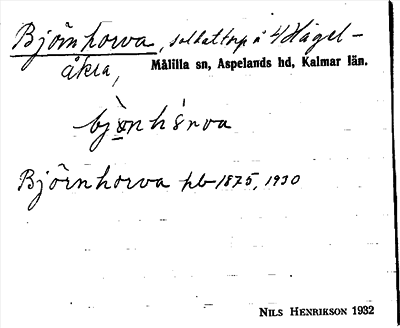 Björnhorva, soldattorp å Hagel-
åkra, Målilla sn, Aspelands hd, Kalmar län.
bjo̱nhórva
Björnhorva hb 1875, 1930
NILS HENRIKSON 1932